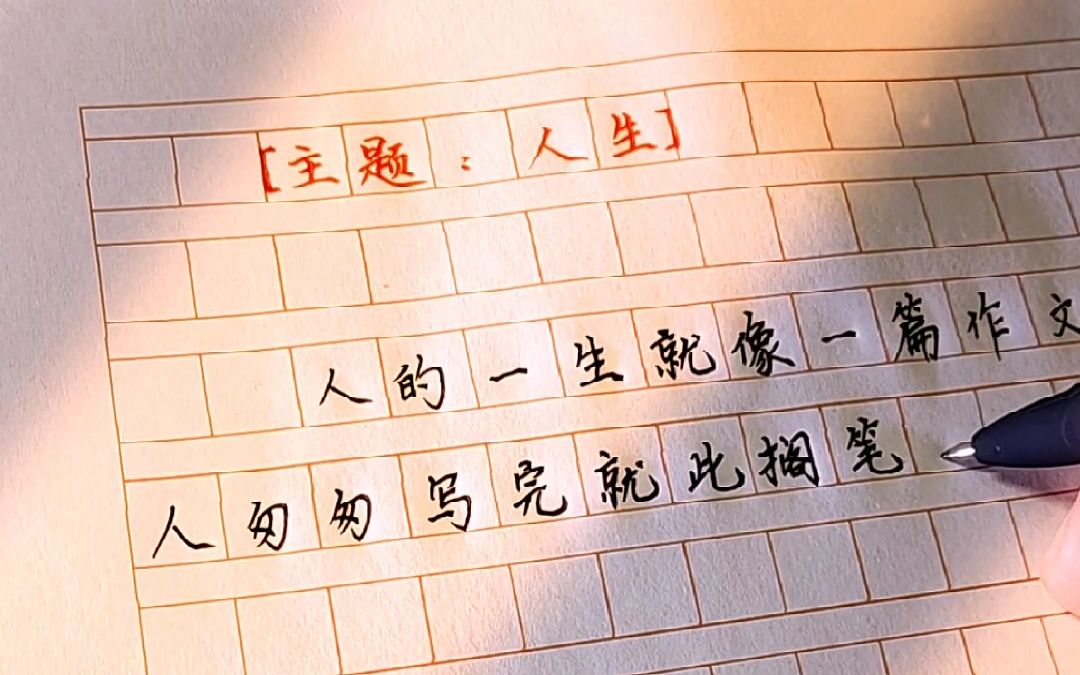 [主题：人生]
人的一生就像一篇作文
人匆匆写完就此搁笔